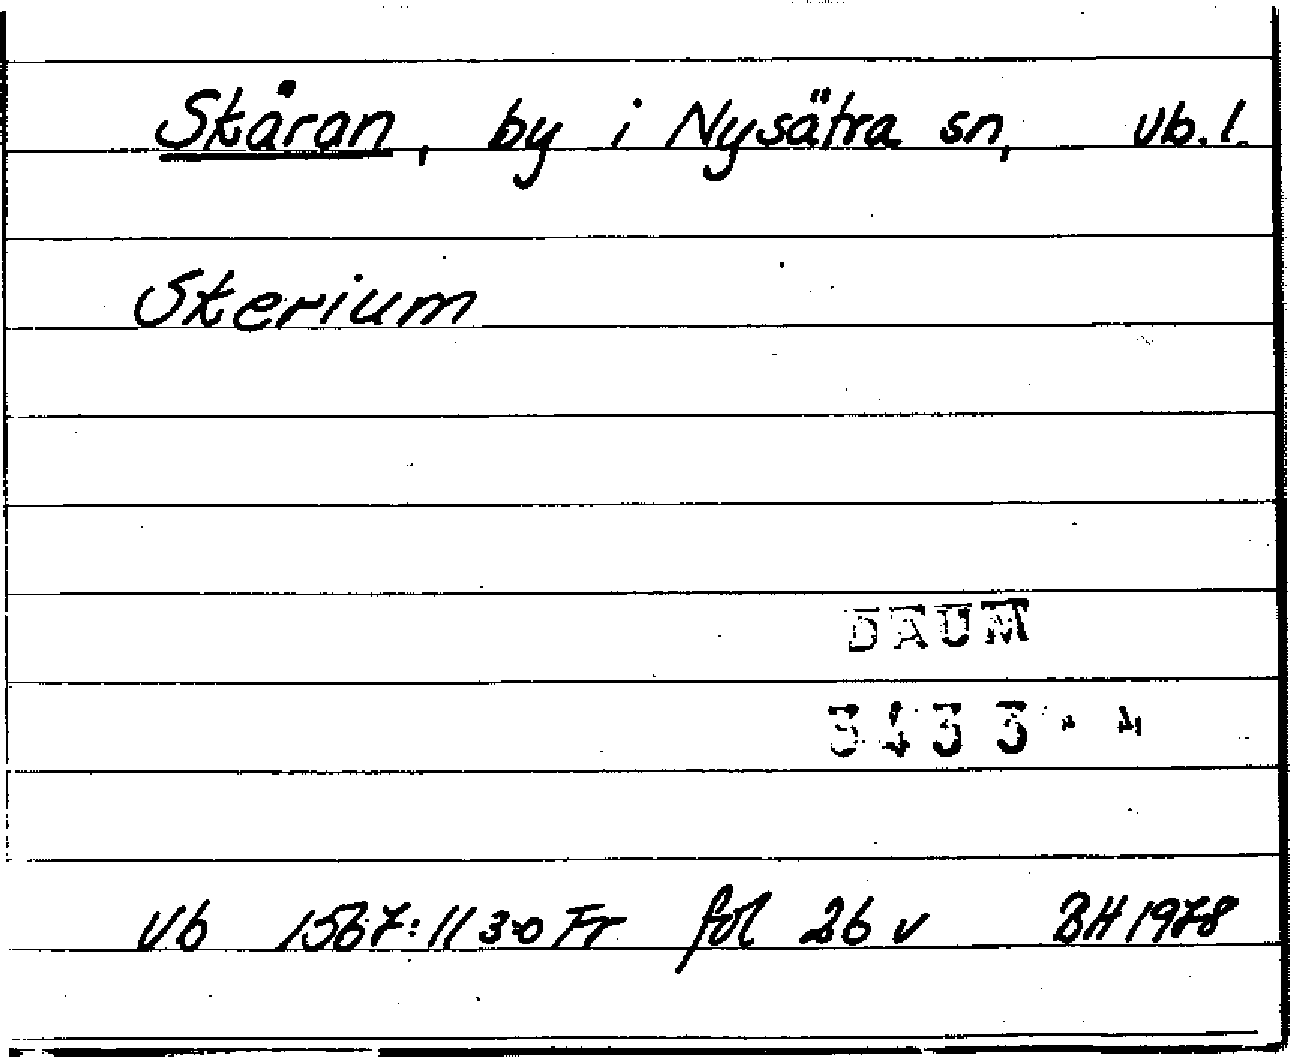 Skåran, by i Nysätra sn, Vb. l.
Skerium
DAUM
3433 . 4
Vb 1567:11 3:0 Fr fol 26 v BH 1978